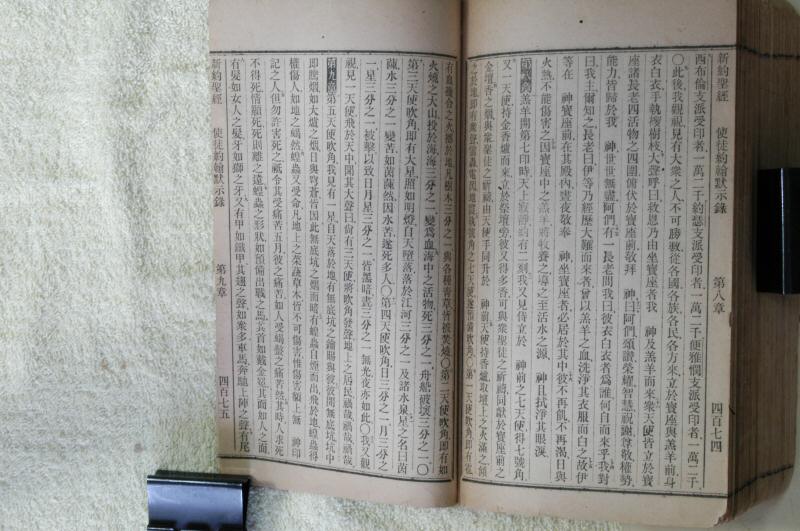 新約聖經　使徒約翰默示錄　第八章　四百七四
西布倫支派受印者、一萬二千、約瑟支派受印者、一萬二千、便雅憫支派受印者、一萬二千
○此後我觀、視見有大衆之人、不可勝數、從各國各族各民各方來、立於寶座與羔羊前、身
衣白衣、手執椶樹枝、大聲呼曰、救恩乃由坐寶座者我 神及羔羊而來、衆天使皆立於寶
座諸長老四活物之四圍、俯伏於寶座前、敬拜 神曰、阿們、頌讚榮耀智慧祝謝尊敬權勢
能力、皆歸於我 神、世世無盡、阿們、有一長老問我曰、彼衣白衣者爲誰、何自而來乎、我對
曰、我主、爾知之、長老曰、伊等乃經歷大難而來者、曾以羔羊之血、洗淨其衣服而白之、故伊
等在 神寶座前、在其殿內晝夜敬奉 神、坐寶座者必居於其中、彼不再飢不再渴、日與
火熱不能傷害之、因寶座中之羔羊將牧養之、導之至活水之源、 神且拭淨其眼淚、
羔羊開第七印時、天上寂靜約有二刻、我又見侍立於 神前之七天使、得七號角、
又一天使持金香爐而來、立於祭壇旁、彼又得多香、可與衆聖徒之祈禱、同獻於寶座前之
金壇、香之煙與衆聖徒之祈禱、由天使手同升於 神前、天使持香爐、取壇上之火滿之、傾
之於地、卽有衆聲雷轟電閃地震、執號角之七天使、遂預備吹角、○第一天使吹角、卽有雹、
有血雜合之火擲於地、凡樹木三分之一、與各種靑草皆被焚燒、○第二天使吹角、卽有如
火燒之大山投於海、海三分之一變爲血、海中之活物、死三分之一、舟船破壞三分之一、○
第三天使吹角、卽有大星照如明燈、自天墮落、落於江河三分之一及諸水泉、星之名曰茵
蔯、水三分之一變苦如茵蔯、然因水苦遂死多人、○第四天使吹角、日三分之一、月三分之
一、星三分之一被擊、以致日月星三分之一皆黑暗、晝三分之一無光、夜亦如此、○我又觀、
視見一天使飛於天中、聞其大聲曰、尙有三天使將吹角發聲、地上之居民禍哉禍哉禍哉、
第九章 第五天使吹角、我見有一星自天落於地、有無底坑之鑰賜與彼、彼開無底坑、坑中
卽騰煙如大爐之煙、日與穹蒼皆因此無底坑之煙而暗、有蝗蟲自煙而出、飛於地、蝗蟲得
權傷人如地之蝎然、蝗蟲又受命、凡地上之菜蔬草木皆不可傷害、惟傷害額上無 神印
記之人、但勿許害死之、祇令其受痛苦五月、彼之痛苦、如人受蝎螫之痛苦然、其時人求死
不得死、情願死、死則離之遠、蝗蟲之形狀、如預備出戰之馬、其首如戴金冠、其面如人之面、
有髮如女人之髮、牙如獅之牙、又有甲如鐵甲、其翅之聲、如衆多車馬奔馳上陣之聲、有尾
新約聖經　使徒約翰默示錄　第九章　四百七五